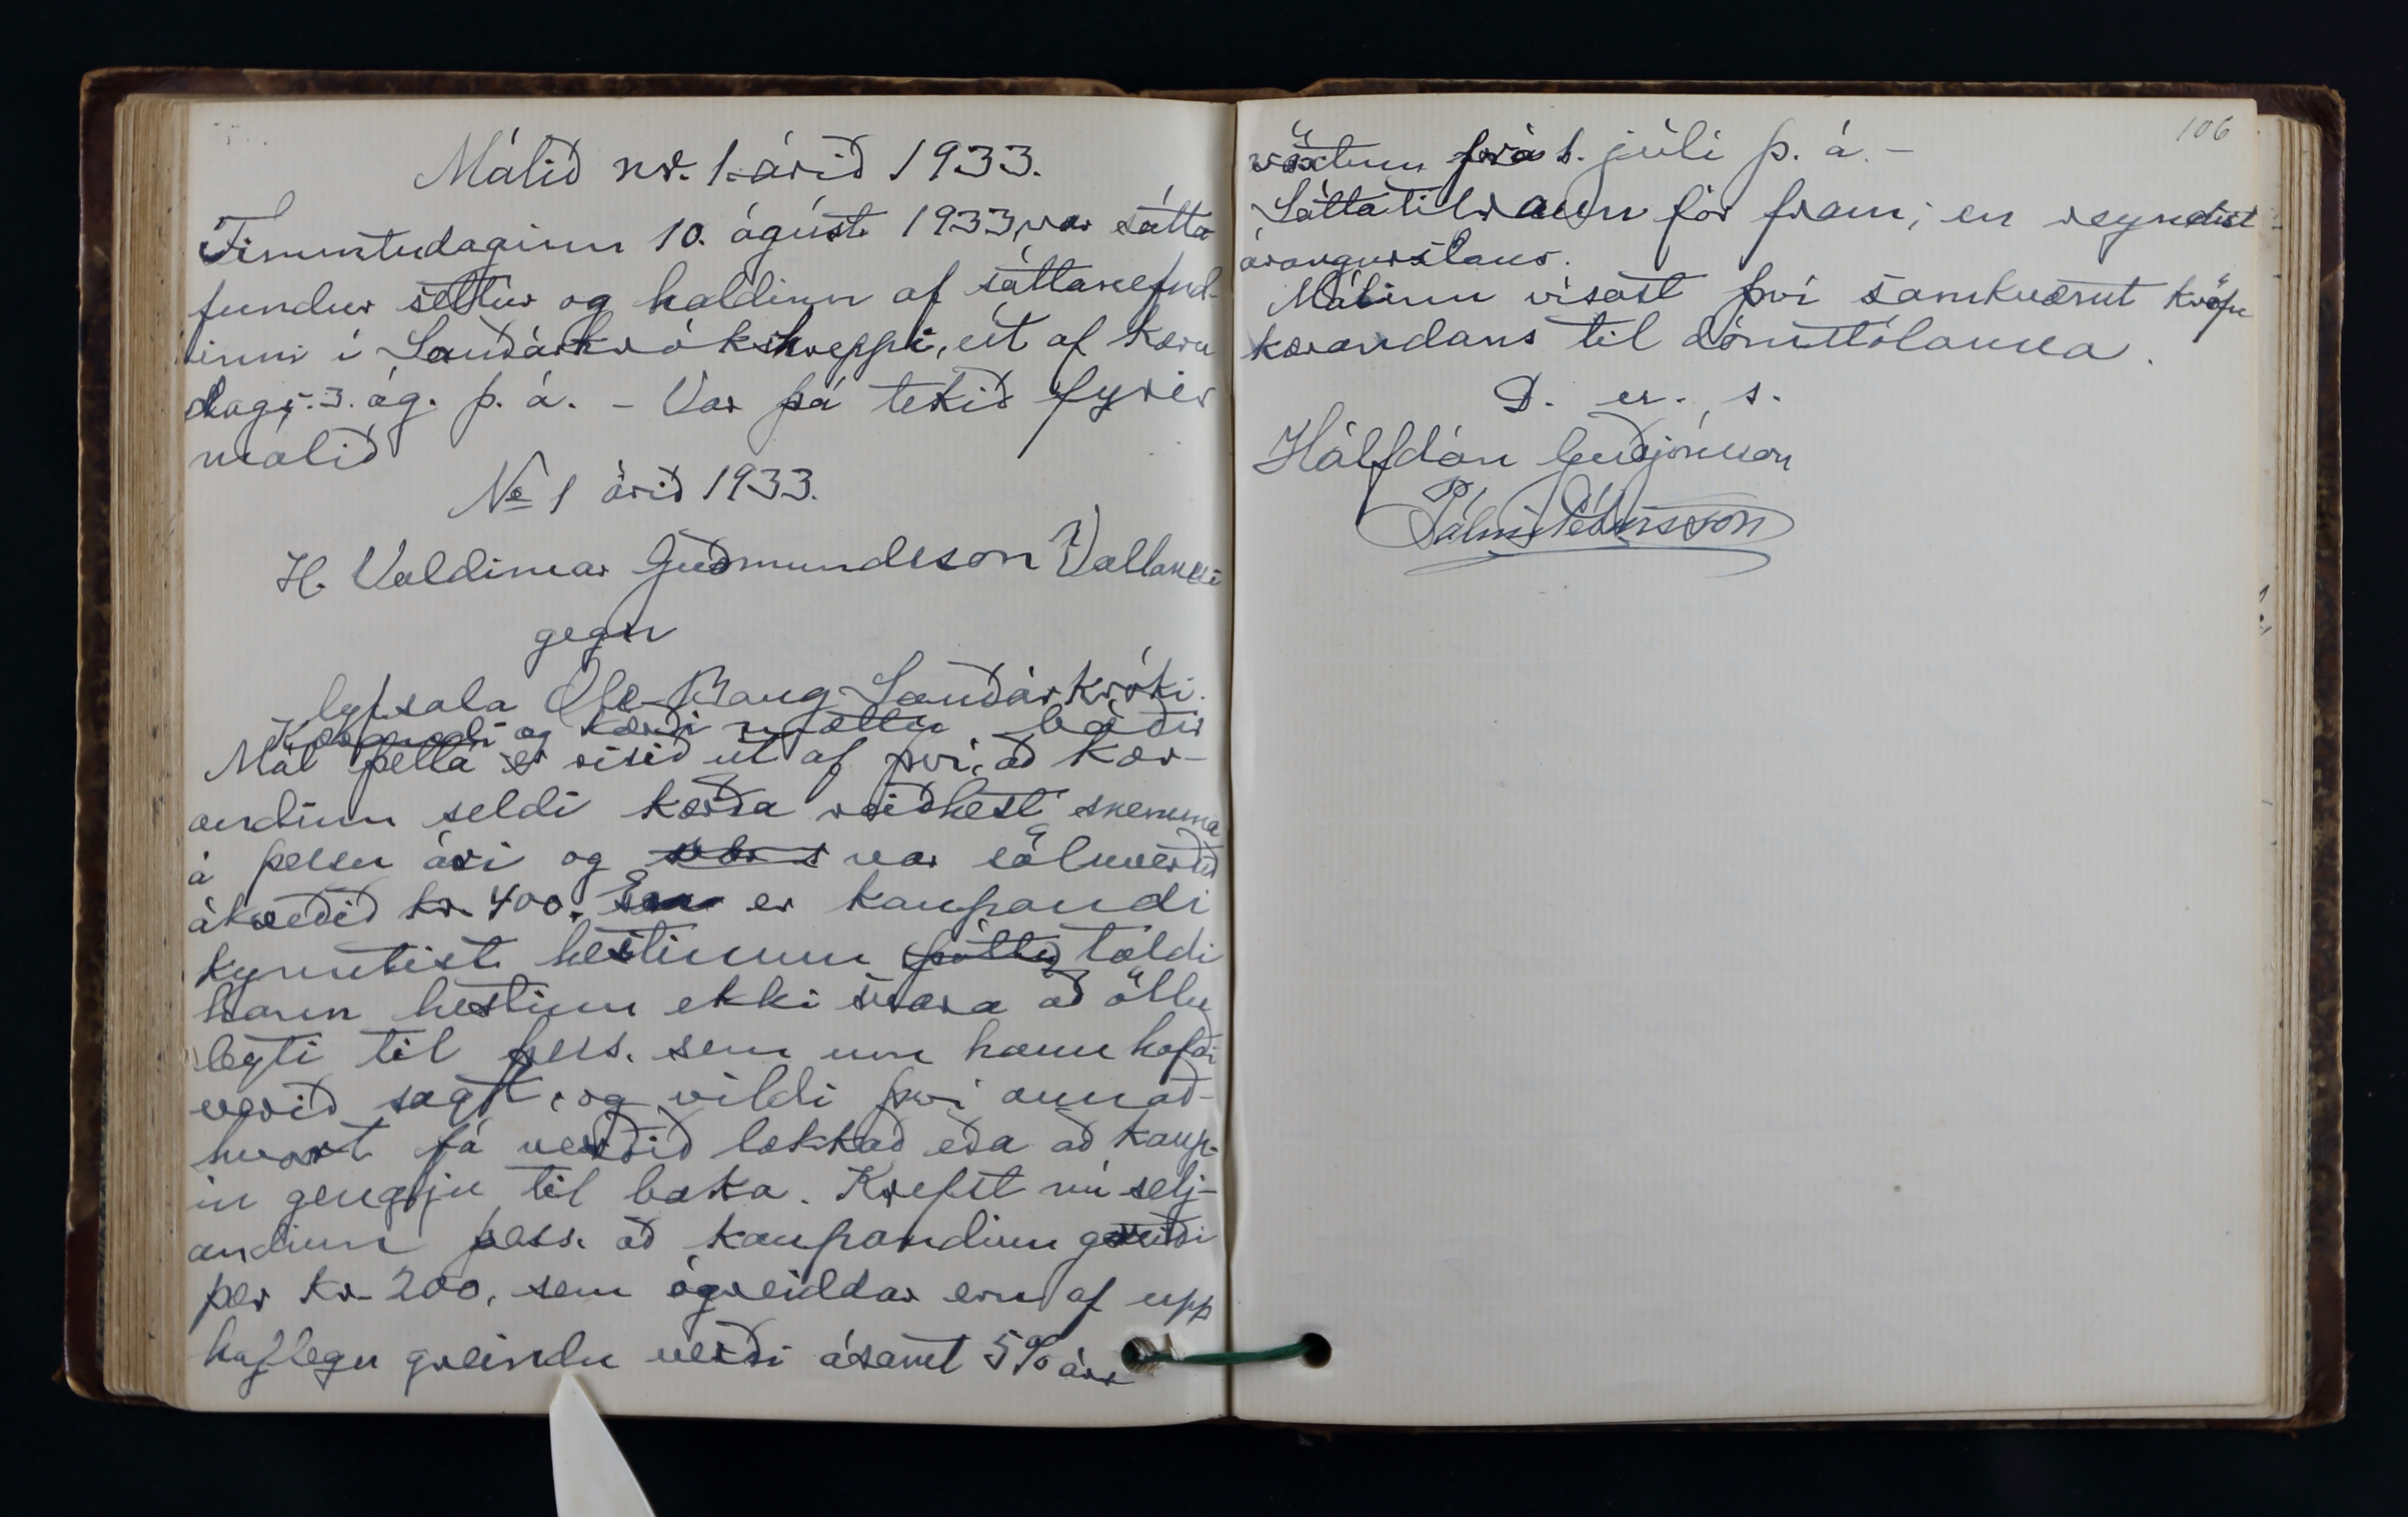 Málið nr. 1. árið 1933.
Fimmtudaginn 10. ágúst 1933, var sátta
fundur settur og haldinn af sáttanefnd-
inni í Sauðárkrókshreppi, út af kæru
dags. 3. ág. þ. á. - Var þá tekið fyrir
málið
No 1 árið 1933.
H. Valdimar Guðmundsson Vallanesi
gegn
lyfsala Ole Bang Sauðárkróki.
Kærandi og kærði mættu báðir
Mál þetta er risið út af því, að kær-
andinn seldi kærða reiðhest snemma
á þessu ári og var söluverðið
ákveðið kr. 400. er kaupandi
kynntist hestinum þótti taldi
hann hestinn ekki svara að öllu
leyti til þess, sem um hann hafði
verið sagt, og vildi því annað-
hvort fá verðið lækkað eða að kaup-
in gengju til baka. Krefst nú selj-
andinn þess, að kaupandinn greiði
þær kr. 200, sem ógreiddar eru af upp
haflegu greindu verði ásamt 5% árs
106
vöxtum frá 1. júlí þ. á. -
Sáttatilraun fór fram; en reyndist
árangurslaus.
Málinu vísast því samkvæmt kröfu
kærandans til dómstólanna.
D. u. s.
Hálfdán Guðjónsson
Pálmi Pétursson